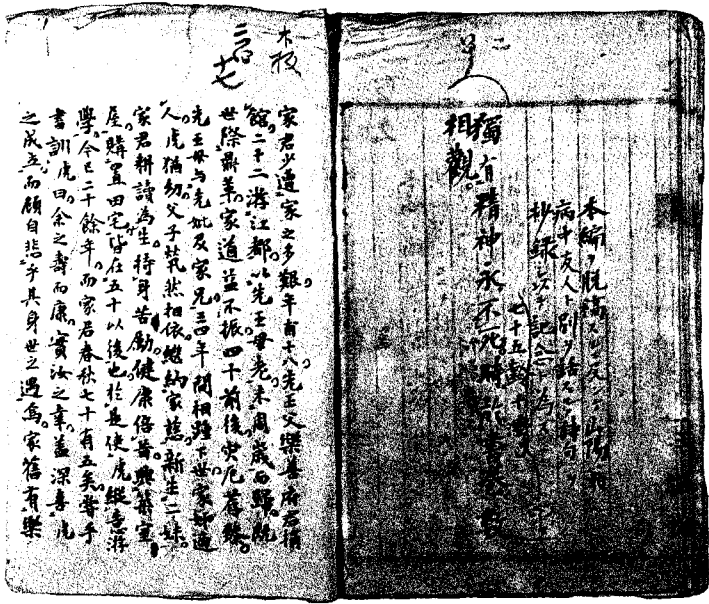 本編ヲ脱稿スルニ及ンテ山陽翁
病中友人ト別ヲ語スルノ詩句ヲ
抄録シ以テ記念ト為ス
七十五齡
獨有精神永不死時於書卷
相觀
木板
十七
家君少遭家之多艱年甫十八先王父樂善府君捐
館二十二游江都以先王母老未周歲而歸既
世際鼎革家道益不振四十前後灾厄荐臻
先王母与先妣及家兄三四年間相踵下世家姉適
人虎猶幼父子煢然相依繼納家慈新生二妹
家君耕讀為生持身苦勵健康倍昔興築室
屋購置田宅皆在五十以後也於是使虎縱意游
學今已二十餘年而家君春秋七十有五矣嘗手
書訓虎曰余之壽而康實汝之幸蓋深喜虎
之成立而顧自悲乎其身世之遇焉家舊有樂